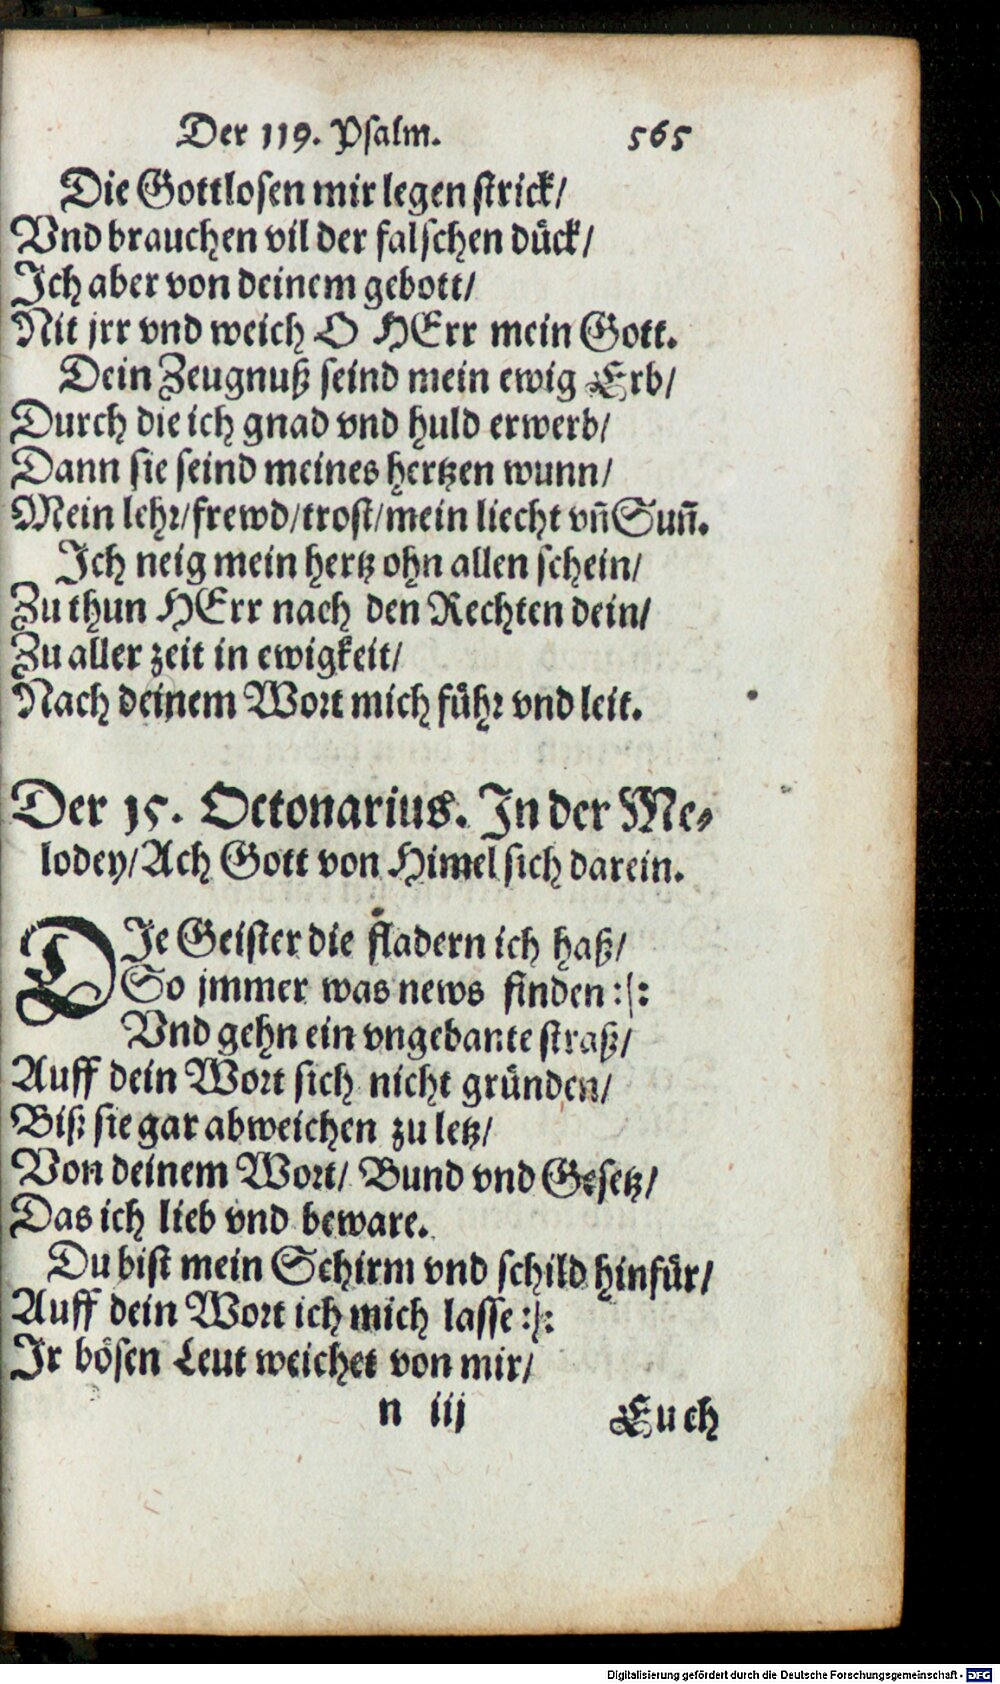 Der 119. Psalm. 565
Die Gottlosen mir legen strick/
Vnd brauchen vil der falschen dück/
Ich aber von deinem gebott/
Nit jrr vnd weich O HErr mein Gott.
Dein Zeugnuß seind mein ewig Erb/
Durch die ich gnad vnd huld erwerb/
Dann sie seind meines hertzen wunn/
Mein lehr/frewd/trost/mein liecht vn̄ Sun̄.
Ich neig mein hertz ohn allen schein/
Zu thun HErr nach den Rechten dein/
Zu aller zeit in ewigkeit/
Nach deinem Wort mich führ vnd leit.
Der 15. Octonarius. In der Me⸗
lodey/Ach Gott von Himel sich darein.
DIe Geister die fladern ich haß/
So jmmer was news finden :|:
Vnd gehn ein vngebante straß/
Auff dein Wort sich nicht gründen/
Biß sie gar abweichen zu letz/
Von deinem Wort/ Bund vnd Gesetz/
Das ich lieb vnd beware.
Du bist mein Schirm vnd schild hinfür/
Auff dein Wort ich mich lasse :|:
Ir bösen Leut weichet von mir/
n iij Euch
Digitalisierung gefördert durch die Deutsche Forschungsgemeinschaft - DFG